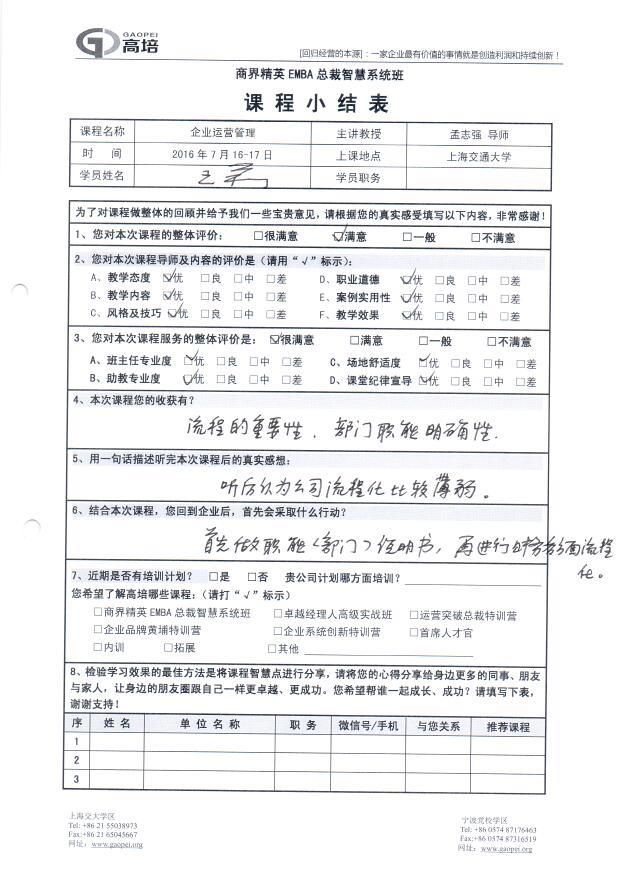 GAOPEI
高培
[回归经营的本源]：一家企业最有价值的事情就是创造利润和持续创新！
商界精英 EMBA 总裁智慧系统班
课程小结表
课程名称 企业运营管理 主讲教授 孟志强 导师
时 间 2016 年 7 月 16-17日 上课地点 上海交通大学
学员姓名 王 学员职务
为了对课程做整体的回顾并给予我们一些宝贵意见，请根据您的真实感受填写以下内容，非常感谢！
1、您对本次课程的整体评价： □很满意 ☑满意 □一般 □不满意
2、您对本次课程导师及内容的评价是（请用“√”标示）：
A、教学态度 ☑优 □良 □中 □差 D、职业道德 ☑优 □良 □中 □差
B、教学内容 ☑优 □良 □中 □差 E、案例实用性 ☑优 □良 □中 □差
C、风格及技巧 ☑优 □良 □中 □差 F、教学效果 ☑优 □良 □中 □差
3、您对本次课程服务的整体评价是： ☑很满意 □满意 □一般 □不满意
A、班主任专业度 ☑优 □良 □中 □差 C、场地舒适度 ☑优 □良 □中 □差
B、助教专业度 ☑优 □良 □中 □差 D、课堂纪律宣导 ☑优 □良 □中 □差
4、本次课程您的收获有？
流程的重要性、部门职能明确性.
5、用一句话描述听完本次课程后的真实感想：
听后认为公司流程化比较薄弱。
6、结合本次课程，您回到企业后，首先会采取什么行动？
首先做职能（部门）说明书，再进行财务方面流程
化。
7、近期是否有培训计划？ □是 □否 贵公司计划哪方面培训？
您希望了解高培哪些课程：（请打“√”标示）
□商界精英 EMBA 总裁智慧系统班 □卓越经理人高级实战班 □运营突破总裁特训营
□企业品牌黄埔特训营 □企业系统创新特训营 □首席人才官
□内训 □拓展 □其他
8、检验学习效果的最佳方法是将课程智慧点进行分享，请将您的心得分享给身边更多的同事、朋友
与家人，让身边的朋友圈跟自己一样更卓越、更成功。您希望帮谁一起成长、成功？请填写下表，
谢谢支持！
序 姓 名 单 位 名 称 职 务 微信号/手机 与您关系 推荐课程
1
2
3
上海交大学区 宁波党校学区
Tel: +86 21 55038973 Tel: +86 0574 87176463
Fax:+86 21 65045667 Fax:+86 0574 87316519
网址：www.gaopei.org 网址：www.gaopei.org